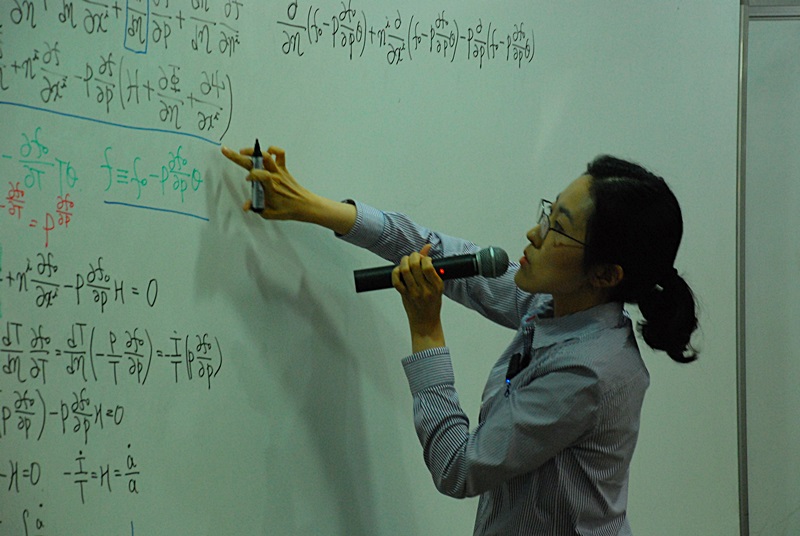 ∂/∂η (f₀ - p ∂f₀/∂p Θ) + nⁱ ∂/∂xⁱ (f₀ - p ∂f₀/∂p Θ) - p ∂/∂p (f₀ - p ∂f₀/∂p Θ)
+ nⁱ ∂f/∂xⁱ - p ∂f/∂p (H + ∂Φ/∂η + ∂Ψ/∂xⁱ)
- ∂f₀/∂T TΘ f ≡ f₀ - p ∂f₀/∂p Θ
∂f₀/∂T = p ∂f₀/∂p
+ nⁱ ∂f₀/∂xⁱ - p ∂f₀/∂p H = 0
dT/dη ∂f₀/∂T = dT/dη (- p/T ∂f₀/∂p) = - Ṫ/T (p ∂f₀/∂p)
(p ∂f₀/∂p) - p ∂f₀/∂p H = 0
- H = 0 - Ṫ/T = H = ȧ/a